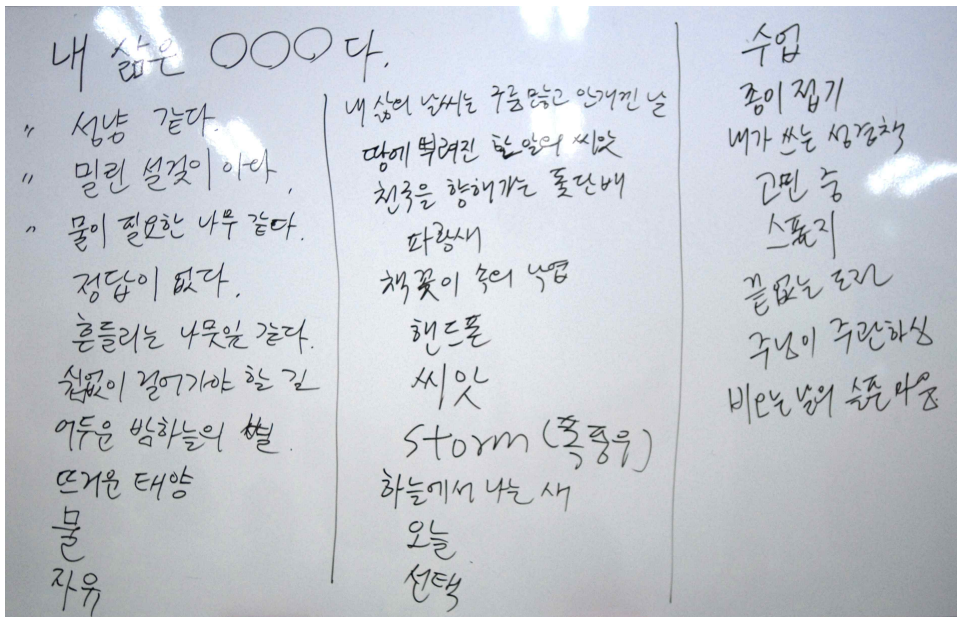 내 삶은 ○○○다.
〃 성냥 같다.
〃 밀린 설겆이 이다.
〃 물이 필요한 나무 같다.
정답이 없다.
흔들리는 나뭇잎 같다.
쉼없이 걸어가야 할 길
어두운 밤하늘의 별
뜨거운 태양
물
자유
내 삶의 날씨는 구름 많고 안개낀 날
땅에 뿌려진 한 알의 씨앗
천국을 향해가는 돛단배
파랑새
책꽂이 속의 낙엽
핸드폰
씨앗
storm (폭풍우)
하늘에서 나는 새
오늘
선택
수업
종이 접기
내가 쓰는 성경책
고민 중
스폰지
끝없는 도전
주님이 주관하심
비오는 날의 슬픈 마음